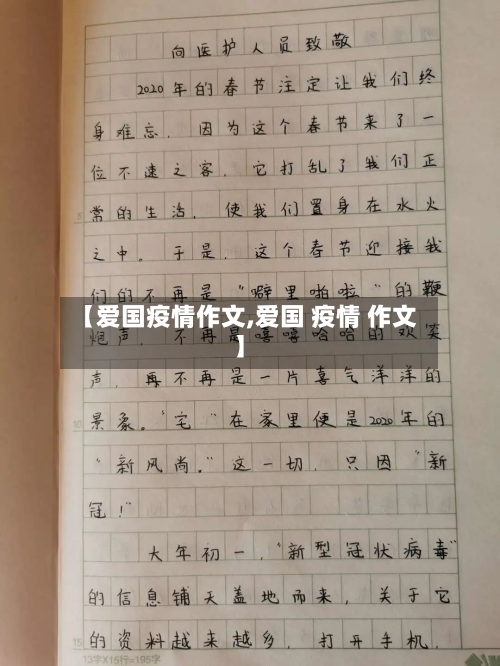 向医护人员致敬
2020年的春节注定让我们终
身难忘，因为这个春节来了一
位不速之客，它打乱了我们正
常的生活，使我们置身在水火
之中。于是，这个春节迎接我
们的不再是“噼里啪啦”的鞭
【爱国疫情作文,爱国 疫情 作文
炮声，不再是嘻嘻哈哈的欢笑
】
声，再不再是一片喜气洋洋的
景象。“宅”在家里便是2020年的
“新风尚。”这一切，只因“新
冠！”
大年初一，“新型冠状病毒”
的信息铺天盖地而来，关于它
的资料越来越多，打开手机，
5
10
15
13字X15行=195字